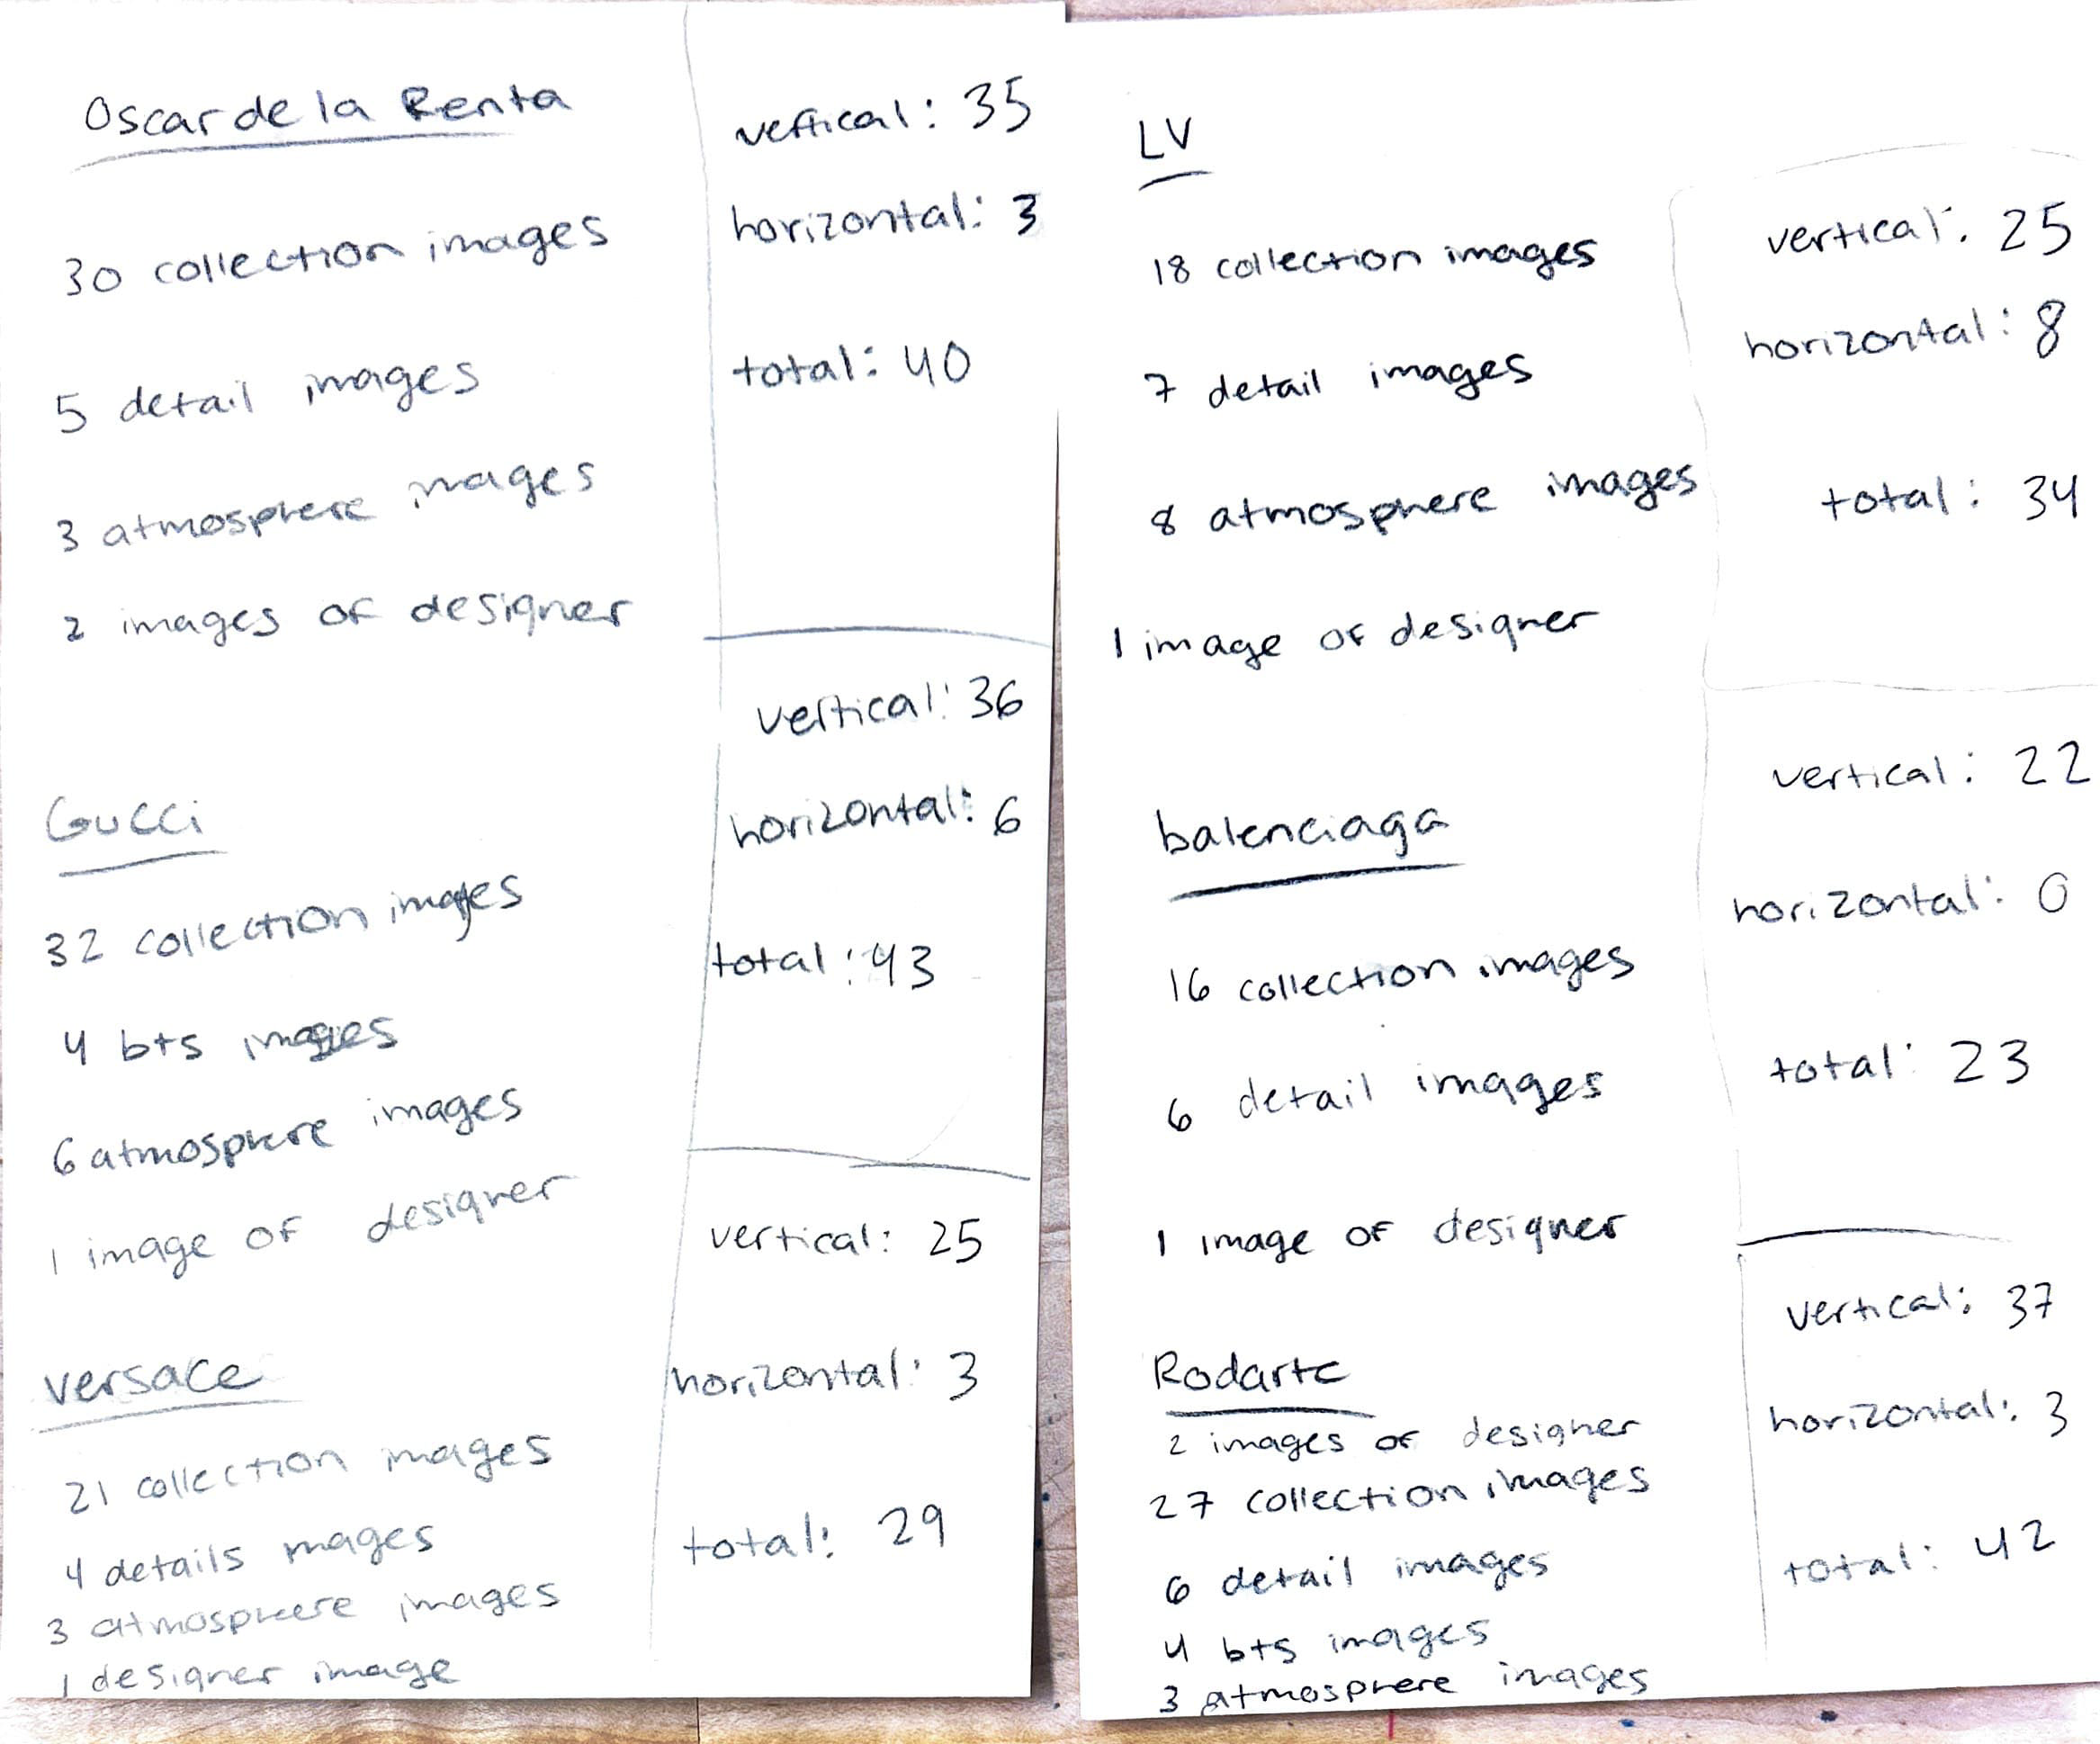 Oscar de la Renta
30 collection images
5 detail images
3 atmosphere images
2 images of designer
vertical: 35
horizontal: 3
total: 40
Gucci
32 collection images
4 bts images
6 atmosphere images
1 image of designer
vertical: 36
horizontal: 6
total: 43
versace
21 collection images
4 details images
3 atmosphere images
1 designer image
vertical: 25
horizontal: 3
total: 29
LV
18 collection images
7 detail images
8 atmosphere images
1 image of designer
vertical: 25
horizontal: 8
total: 34
balenciaga
16 collection images
6 detail images
1 image of designer
vertical: 22
horizontal: 0
total: 23
Rodarte
2 images of designer
27 collection images
6 detail images
4 bts images
3 atmosphere images
vertical: 37
horizontal: 3
total: 42